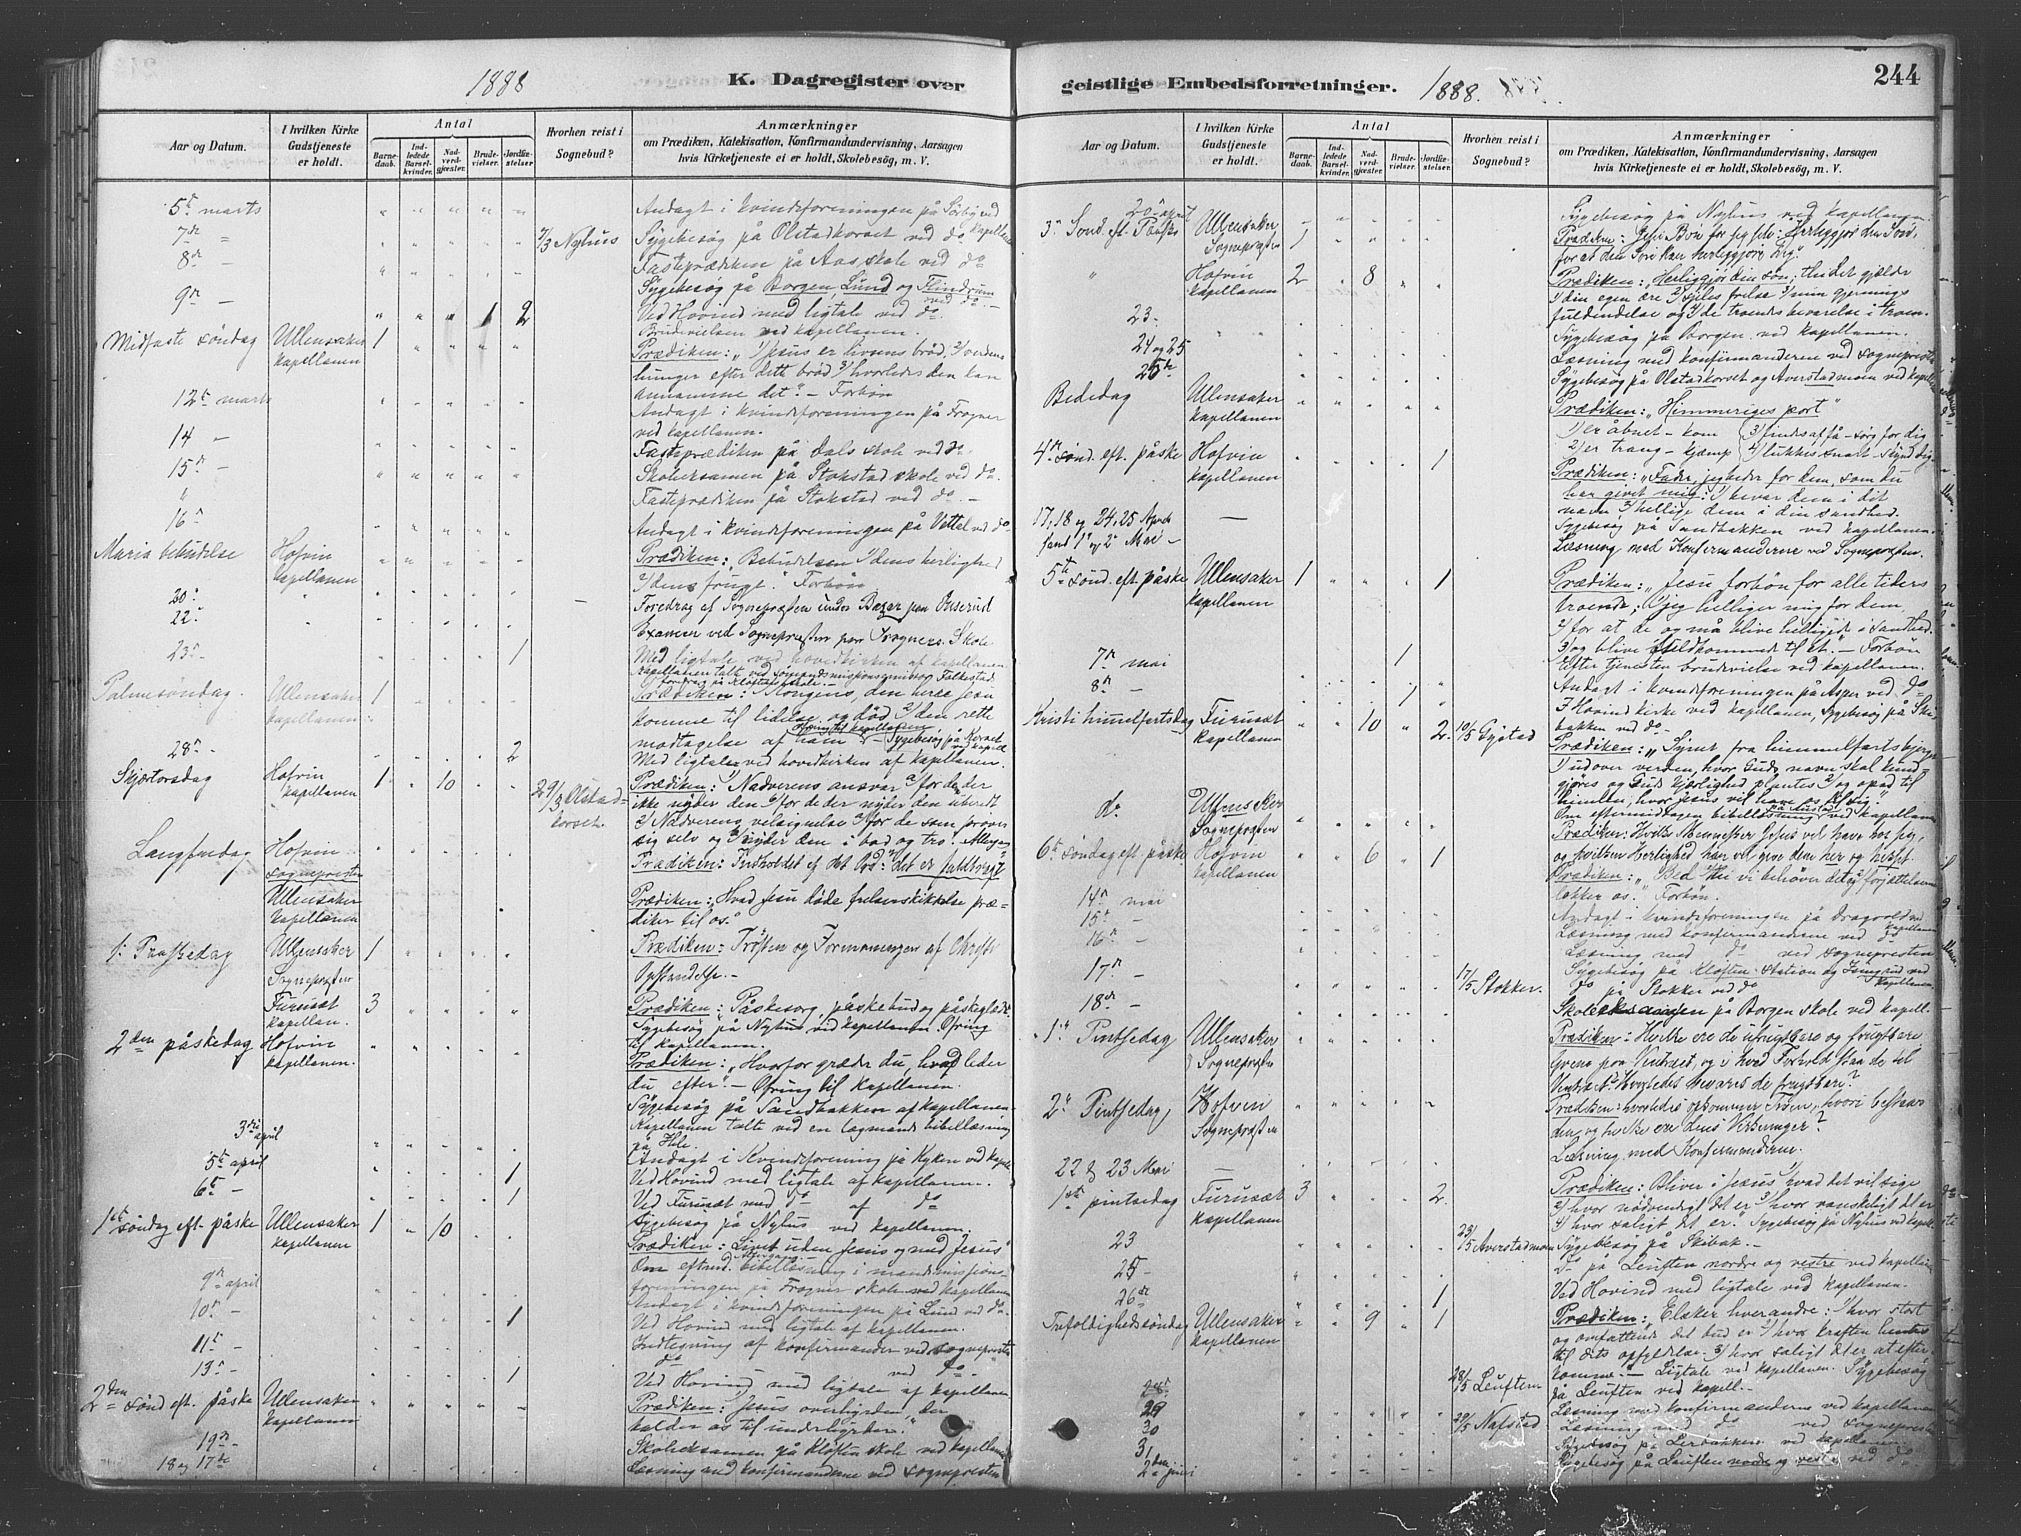 1888
K. Dagregister over
Aar og Datum.
I hvilken Kirke Gudstjeneste er holdt.
Antal
Barnedaab.
Indledede Barselkvinder.
Nadverdgjæster.
Brudevielser.
Jordfæstelser.
Hvorhen reist i Sognebud?
Anmærkninger
om Prædiken, Katekisation, Konfirmandundervisning, Aarsagen
hvis Kirketjeneste ei er holdt, Skolebesög, m. V.
5te marts Andagt i kvindeforeningen på Sörby ved kapellanen
7de = 7/3 Nyhus Sygebesög på Olstadkorset ved do
8de - Fasteprædiken på Aas skole ved do
9de - Sygebesög på Borgen, Lund og Flindrum ved do.
1 2 Ved Hovind med ligtale ved do.
Brudevielsen ved kapellanen.
Midfaste söndag Ullensaker kapellanen 1 Prædiken: "1/ Jesus er livsens bröd, 2/ verdens
hunger efter dette bröd 3/ hvorledes den kan
annamme det". - Forbön
12te marts Andagt i kvindeforeningen på Frogner
ved kapellanen.
14 - Fasteprædiken på Dals skole ved do
15de - Skoleexamen på Stokstad skole ved do.
" Fasteprædiken på Stokstad ved do. -
16de Andagt i kvindeforeningen på Vettal ved do
Maria bebudelse Hofvin kapellanen Prædiken: "Bebudelsen 1/ dens herlighed
2/ dens frugt." Forbön
20de Foredrag af Sognepræsten under Bazar paa Inserud
22de Examen ved Sognepræsten paa Frogners Skole
23de - 1 Med ligtale ved hovedkirken af kapellanen
Palmesöndag. Ullensaker kapellanen 1 Prædiken: Kongens, den herre Jesu
komme til lidelse og död, 2/ den rette
modtagelse af ham - Sygebesög på Korset
28de - 2 Med ligtale ved hovedkirken af kapellanen.
Skjærtorsdag Hofvin kapellanen 1 10 29/3 Olstadkorset. Prædiken: Nadverens ansvar 1/ for de der
ikke nyder den 2/ for de der nyder den uberedt
2/ Nadverens velsignelse 1/ for de som prøver
sig selv og 2/ nyder den i bod og tro. Altergang
Langfredag Hofvin sognepresten Prædiken: Indholdet af det Ord: det er fuldbragt
Ullensaker kapellanen Prædiken: Hvad Jesu döde frelserskikkelse præ-
diker til os."
1. Paaskedag Ullensaker Sognepræsten 1 Prædiken: Trösten og Formaningen af Christi
Opstandelse. -
Furuset kapellan. 3 Prædiken: "Påskesorg, påskebud og påskeglæde.
Sygebesög på Nyhus ved kapellanen. Ofring
til kapellanen.
2den påskedag Hofvin kapellanen. Prædiken: "Hvorfor græder du, hvad leder
du efter". - Ofring til kapellanen.
Sygebesög på Sandbakken af kapellanen
3die april Kapellanen talte ved en lægmands bibellæsning
på Hele.
5te april Andagt i Kvindeforening på Kyken ved kapell.
6te - 1 Ved Hovind med ligtale af kapellanen.
1 Ved Furuset med do af do
1ste söndag eft. påske Ullensaker kapellanen 1 10 Sygebesög på Nyhus ved kapellanen.
Prædiken: Livet uden Jesus og med Jesus"
Om eftmd. bibellæsning i mandsmissions-
9de april foreningen på Frogner skole ved kapellanen
10de - Andagt i kvindeforeningen på Lund ved do.
1 Ved Hovind med ligtale af kapellanen.
11te - Indtegning af konfirmander ved sognepresten
do ved do.
13de - 1 Ved Hovind med ligtale af kapellanen
2den sönd eft. påske Ullensaker kapellanen Prædiken: Jesus overligeden, der
kalder os til underligeden."
19de - Skoleexamen på Klöften skole ved kapellanen
18 og 17de Læsning med konfirmanderne ved sognepresten
geistlige Embedsforretninger.
1888.
244
Aar og Datum.
I hvilken Kirke Gudstjeneste er holdt.
Antal
Barnedaab.
Indledede Barselkvinder.
Nadverdgjæster.
Brudevielser.
Jordfæstelser.
Hvorhen reist i Sognebud?
Anmærkninger
om Prædiken, Katekisation, Konfirmandundervisning, Aarsagen
hvis Kirketjeneste ei er holdt, Skolebesög, m. V.
20de april Sygebesög på Nyhus ved kapellanen.
3de Sönd. eft. Paaske Ullensaker Sognepræsten 1 Prædiken: Jesu Bön for sig selv: Herliggjör din Sön,
for at din Sön kan herliggjøre Dig."
" Hofvin kapellanen 2 8 Prædiken: "Herliggjör din sön, thi det gjælder
1/ din egen ære 2/ sjeles frelse 3/ min gjernings
fuldendelse og 4/ de troendes bevarelse i troen.
23. Sygebesög på Borgen ved kapellanen.
24 og 25 Læsning med konfirmanderne ved sognepresten
25de Sygebesög på Olstadkorset og Averstadmoen ved kapell.
Bededag Ullensaker kapellanen Prædiken: "Himmeriges port"
1/ er åbnet - kom 3/ findes af få - sörg for dig
2/ er trang - kjæmp 4/ lukkes snart - skynd dig.
4de sönd. eft. påske Hofvin kapellanen 1 Prædiken: "Fader, jeg beder for dem, som du
har givet mig: 1/ bevar dem i dit
navn 2/ hellige dem i din sandhed.
Sygebesög på Sandbakken ved kapellanen.
17, 18 og 24, 25 April samt 1 og 2 Mai - Læsning med Konfirmanderne ved Sognepræsten.
5te sönd. eft. påske Ullensaker kapellanen 1 1 Prædiken: "Jesu forbön for alle tiders
troende; 1/ jeg helliger mig for dem,
2/ for at de og må blive helliget i Sandhed.
3/ og blive fuldkommed til et". - Forbön
7de mai 1 Efter tjenesten brudevielse ved kapellanen.
8de - 1 Andagt i kvindeforeningen på Asper ved do
I Hovind kirke ved kapellanen, Sygebesög på Ski-
bakken ved do.
Kristi himmelfartsdag Furuset kapellanen 10 2. 10/5 Gystad Prædiken: "Synet fra himmelfartsbjerget
1/ udover verden, hvor Guds navn skal kund-
gjöres og Guds kjærlighed plantes 2/ og opad til
himlen, hvor Jesus vil have os til sig."
Om eftermiddagen bibellæsning ved kapellanen
do. Ullensaker Sognepræsten Prædiken: Hvilke Mennesker Jesus vil have hos sig,
og hvilken Herlighed han vil give dem her og hisset.
6te söndag eft. påske Hofvin kapellanen 6 1 Prædiken: "Bed! thi vi behöver det og forjættelserne
lokker os". Forbön.
14de mai Andagt i kvindeforeningen på Dragvold ved kapellanen
15de - Læsning med konfirmanderne ved do
16de - Læsning med do ved sognepresten
17de - 17/5 Stokker. Sygebesög på Klöften station og Isingrud ved kapellanen
do på Stokker ved do
18de - Skoleeksamen på Borgen skole ved kapell.
1ste Pintsedag Ullensaker Sognepræsten Prædiken: Hvilke ere de ufrugtbare og frugtbare
Grene paa Vintræet, og i hvad Forhold staa de til
Vintræet? Hvorledes bevares de frugtbare?
2den Pintsedag Hofvin Sognepræsten Prædiken: hvorledes opkommer Troen, hvori bestaaer
den, og hvilke ere dens Virkninger?
22 & 23 Mai - Læsning med Konfirmanderne.
1ste pintsedag Furuset kapellanen 3 2. Prædiken: Bliver i Jesus, hvad det vil sige
2/ hvor nödvendigt det er 3/ hvor vanskeligt det er
4/ hvor saligt det er." Sygebesög på Nyhus ved kapell.
23 23/5 Averstadmoen Sygebesög på Skibak. -
25 - do på Leuften nordre og vestre ved kapellanen
26de 1 Ved Hovind med ligtale ved kapellanen.
Trefoldighedssöndag Ullensaker kapellanen 9 1 Prædiken: "Elsker hverandre: 1/ hvor stort
og omfattende det bud er 2/ hvor kraften hentes
til dets opfyldelse. 3/ hvor saligt det er at efter-
komme. - Ligtale ved kapellanen. Sygebesög
28/5 Leuften på Leuften ved kapell. -
28de Læsning med konfirmanderne ved kapellanen
29 29/5 Nalstad Læsning med do ved sognepresten
30 Sygebesög på Lerbakken ved kapellanen
31
2den juni Sygebesög på Leuften nordre og vestre ved do